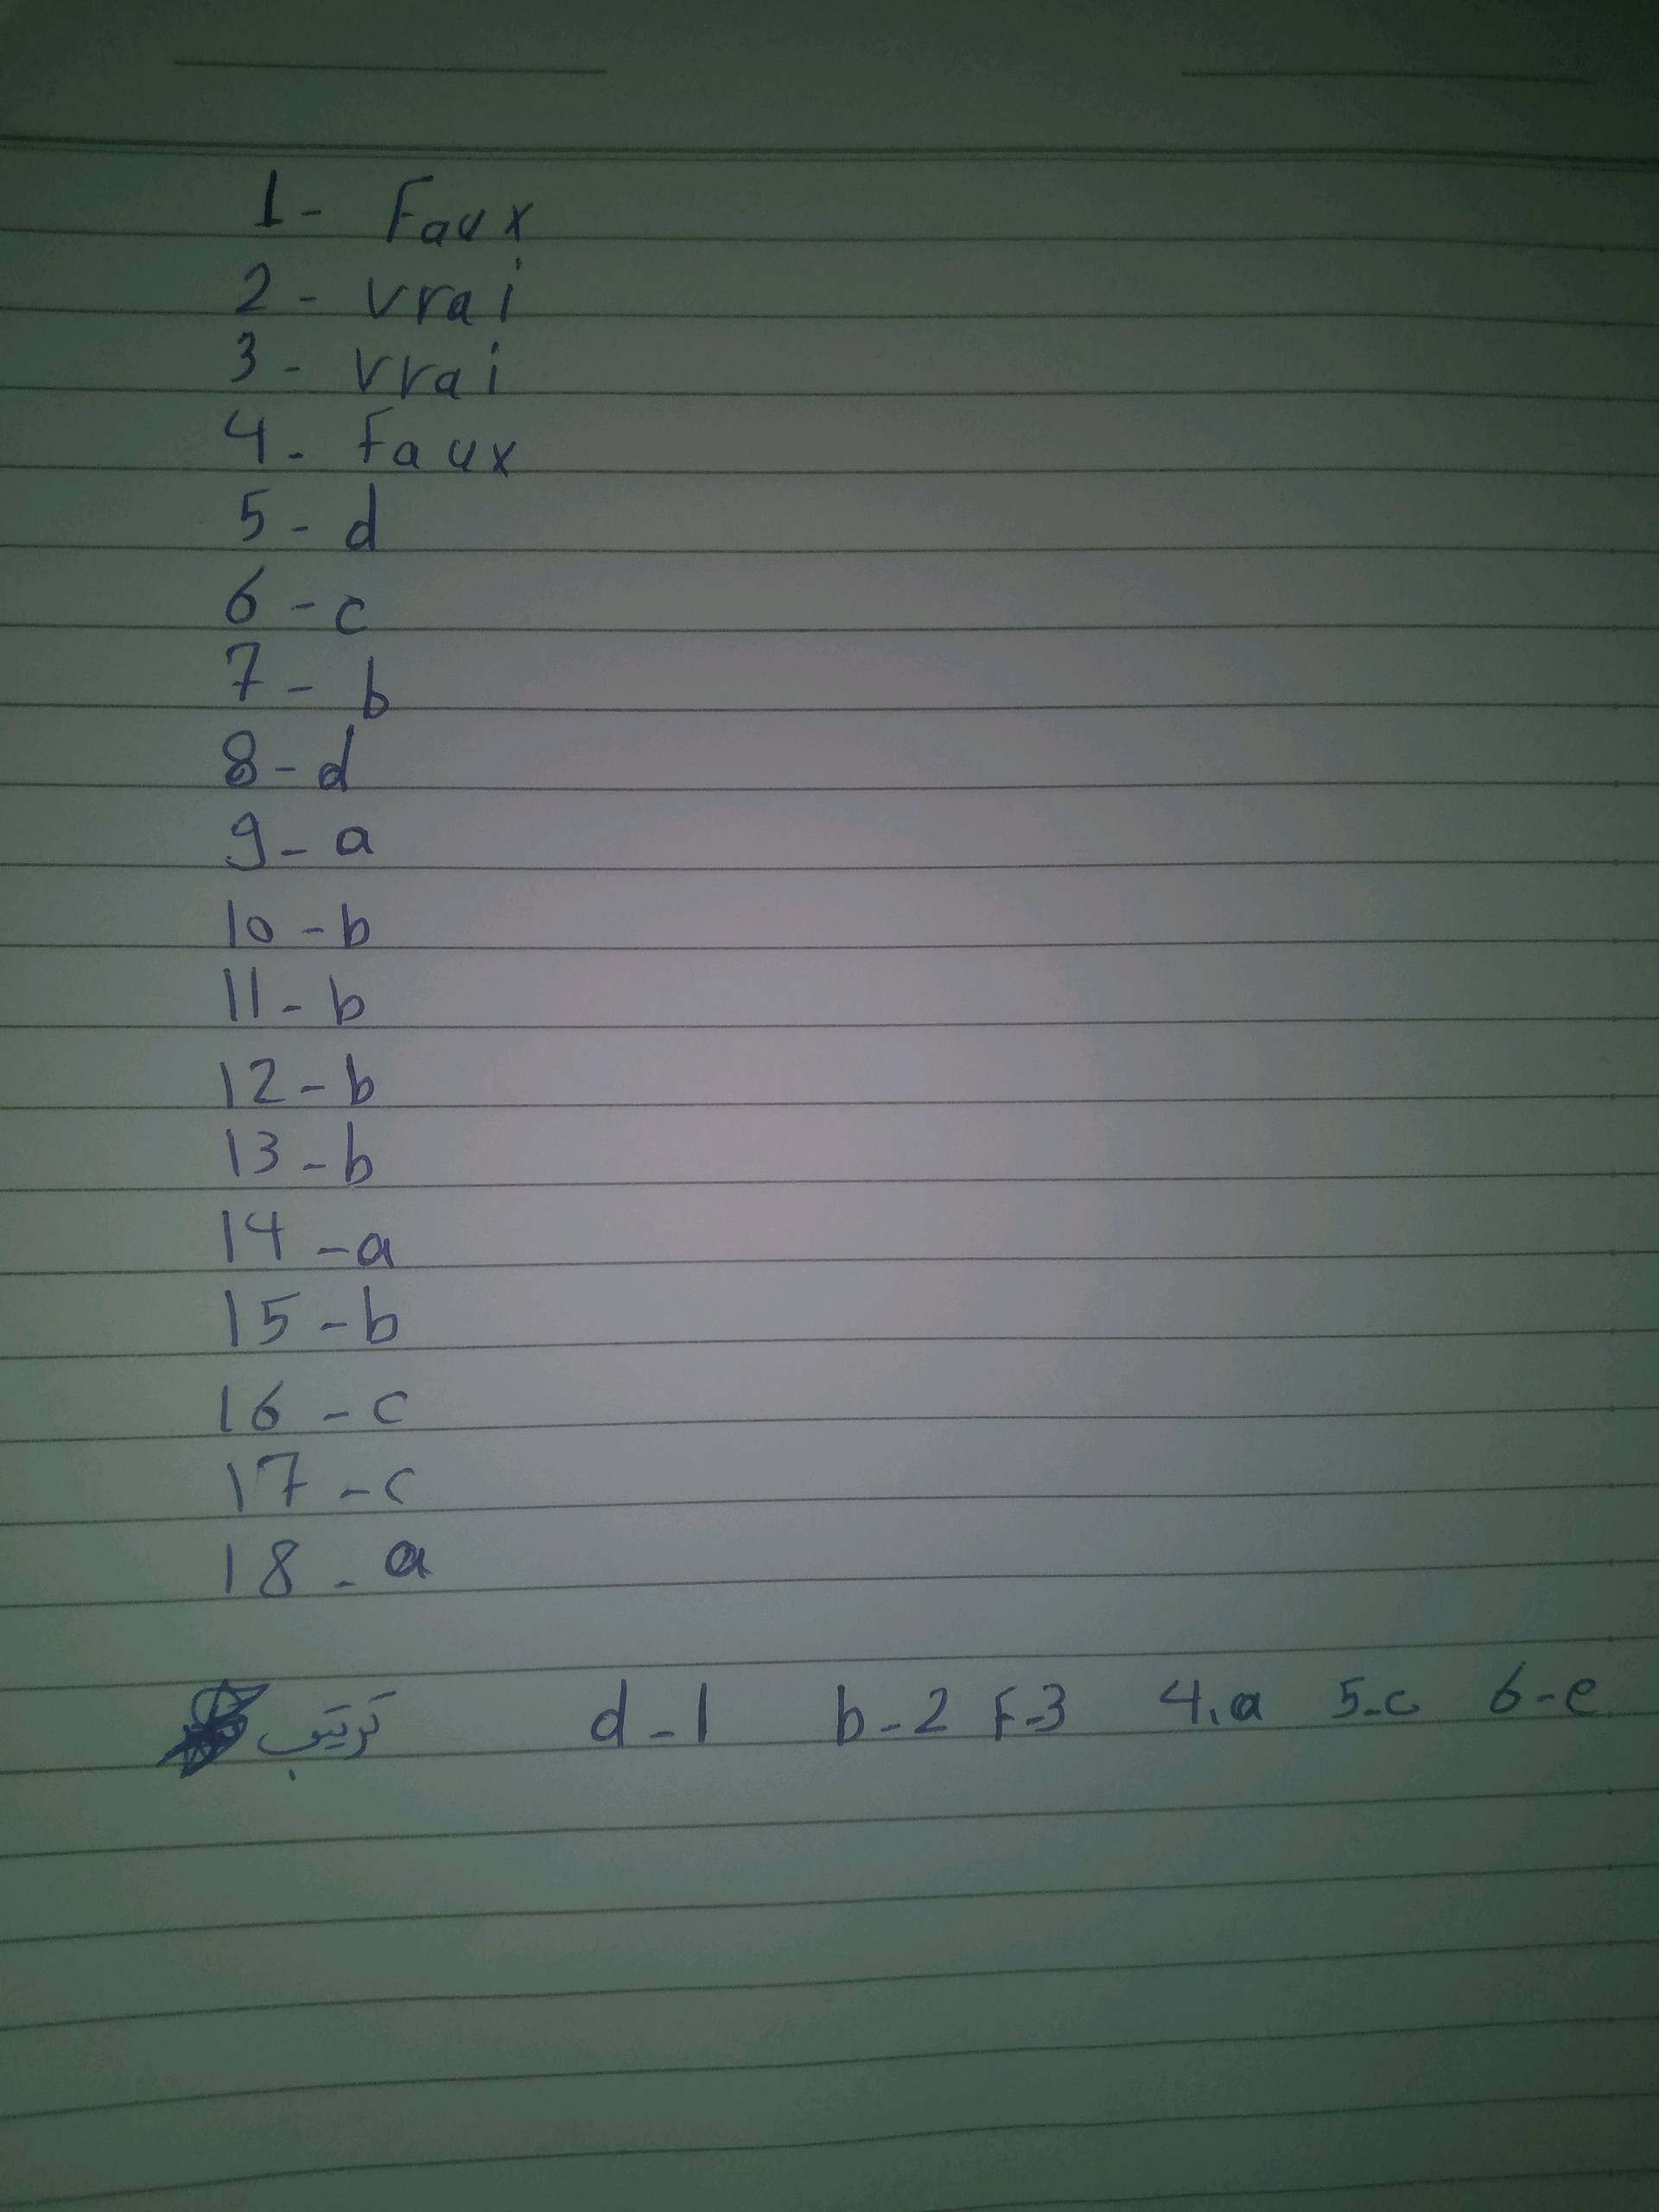 1- Faux
2- vrai
3- vrai
4- Faux
5- d
6-c
7- b
8-d
9-a
10-b
11-b
12-b
13-b
14-a
15-b
16-c
17-c
18-a
ترتيب d-1 b-2 F-3 4.a 5-c 6-e